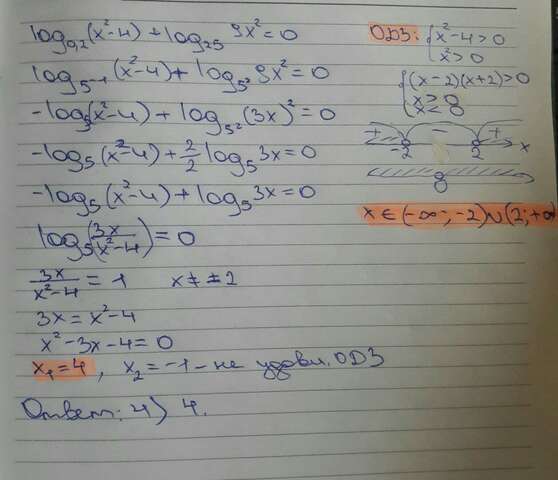 log₀,₂(x²-4) + log₂₅ 9x² = 0
log₅-¹(x²-4) + log₅² 9x² = 0
-log₅(x²-4) + log₅² (3x)² = 0
-log₅(x²-4) + 2/2 log₅ 3x = 0
-log₅(x²-4) + log₅ 3x = 0
log₅(3x/(x²-4)) = 0
3x/(x²-4) = 1 x ≠ ±2
3x = x²-4
x²-3x-4=0
x₁=4, x₂=-1 - не удовл. ОДЗ
Ответ: 4) 4.
ОДЗ: { x²-4>0
x²>0
{ (x-2)(x+2)>0
x > 0
x < 0
+ - +
-2 2 x
0
x ∈ (-∞; -2)∪(2; +∞)